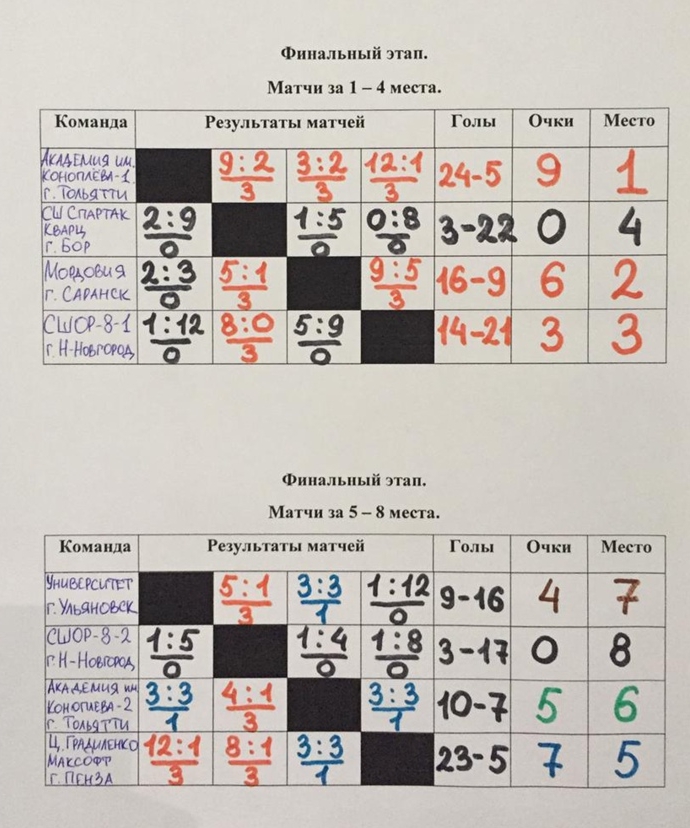 Финальный этап.
Матчи за 1 – 4 места.
Команда Результаты матчей Голы Очки Место
АКАДЕМИЯ ИМ. КОНОПЛЁВА-1 г. ТОЛЬЯТТИ 9:2 3 3:2 3 12:1 3 24-5 9 1
СШ СПАРТАК КВАРЦ г. БОР 2:9 0 1:5 0 0:8 0 3-22 0 4
МОРДОВИЯ г. САРАНСК 2:3 0 5:1 3 9:5 3 16-9 6 2
СШОР-8-1 г. Н-НОВГОРОД 1:12 0 8:0 3 5:9 0 14-21 3 3
Финальный этап.
Матчи за 5 – 8 места.
Команда Результаты матчей Голы Очки Место
УНИВЕРСИТЕТ г. УЛЬЯНОВСК 5:1 3 3:3 1 1:12 0 9-16 4 7
СШОР-8-2 г. Н-НОВГОРОД 1:5 0 1:4 0 1:8 0 3-17 0 8
АКАДЕМИЯ ИМ КОНОПЛЕВА-2 г. ТОЛЬЯТТИ 3:3 1 4:1 3 3:3 1 10-7 5 6
Ц. ГРАДИЛЕНКО МАКСОФТ г. ПЕНЗА 12:1 3 8:1 3 3:3 1 23-5 7 5